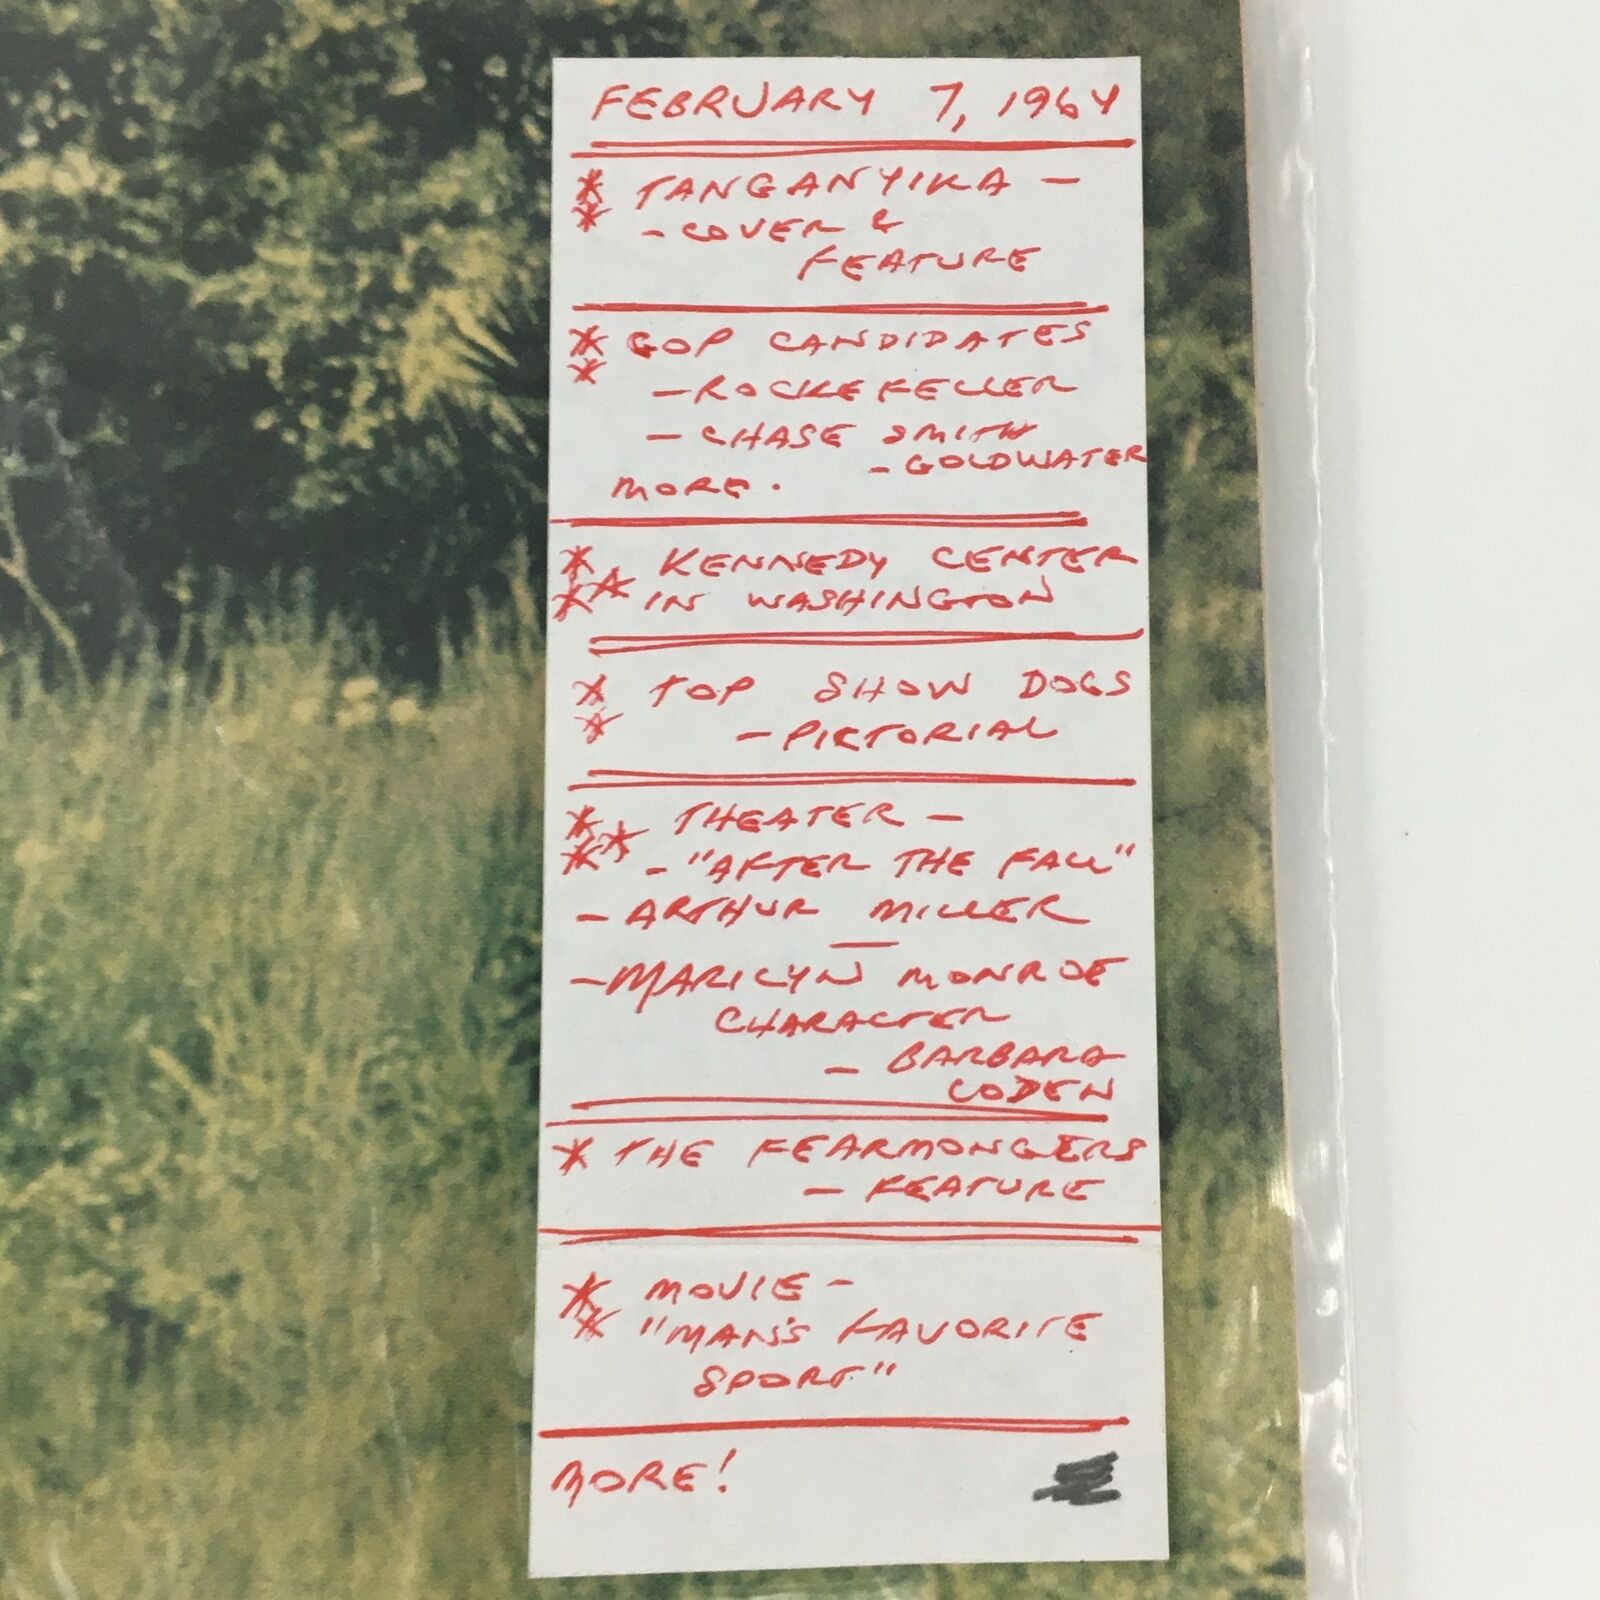 FEBRUARY 7, 1964
* TANGANYIKA -
* - COVER &
FEATURE
* GOP CANDIDATES
* - ROCKEFELLER
- CHASE SMITH
- GOLDWATER
MORE.
* KENNEDY CENTER
** IN WASHINGTON
* TOP SHOW DOGS
* - PICTORIAL
* THEATER -
** - "AFTER THE FALL"
- ARTHUR MILLER
- MARILYN MONROE
CHARACTER
- BARBARA
LODEN
* THE FEARMONGERS
- FEATURE
* MOVIE -
* "MAN'S FAVORITE
SPORT"
MORE!